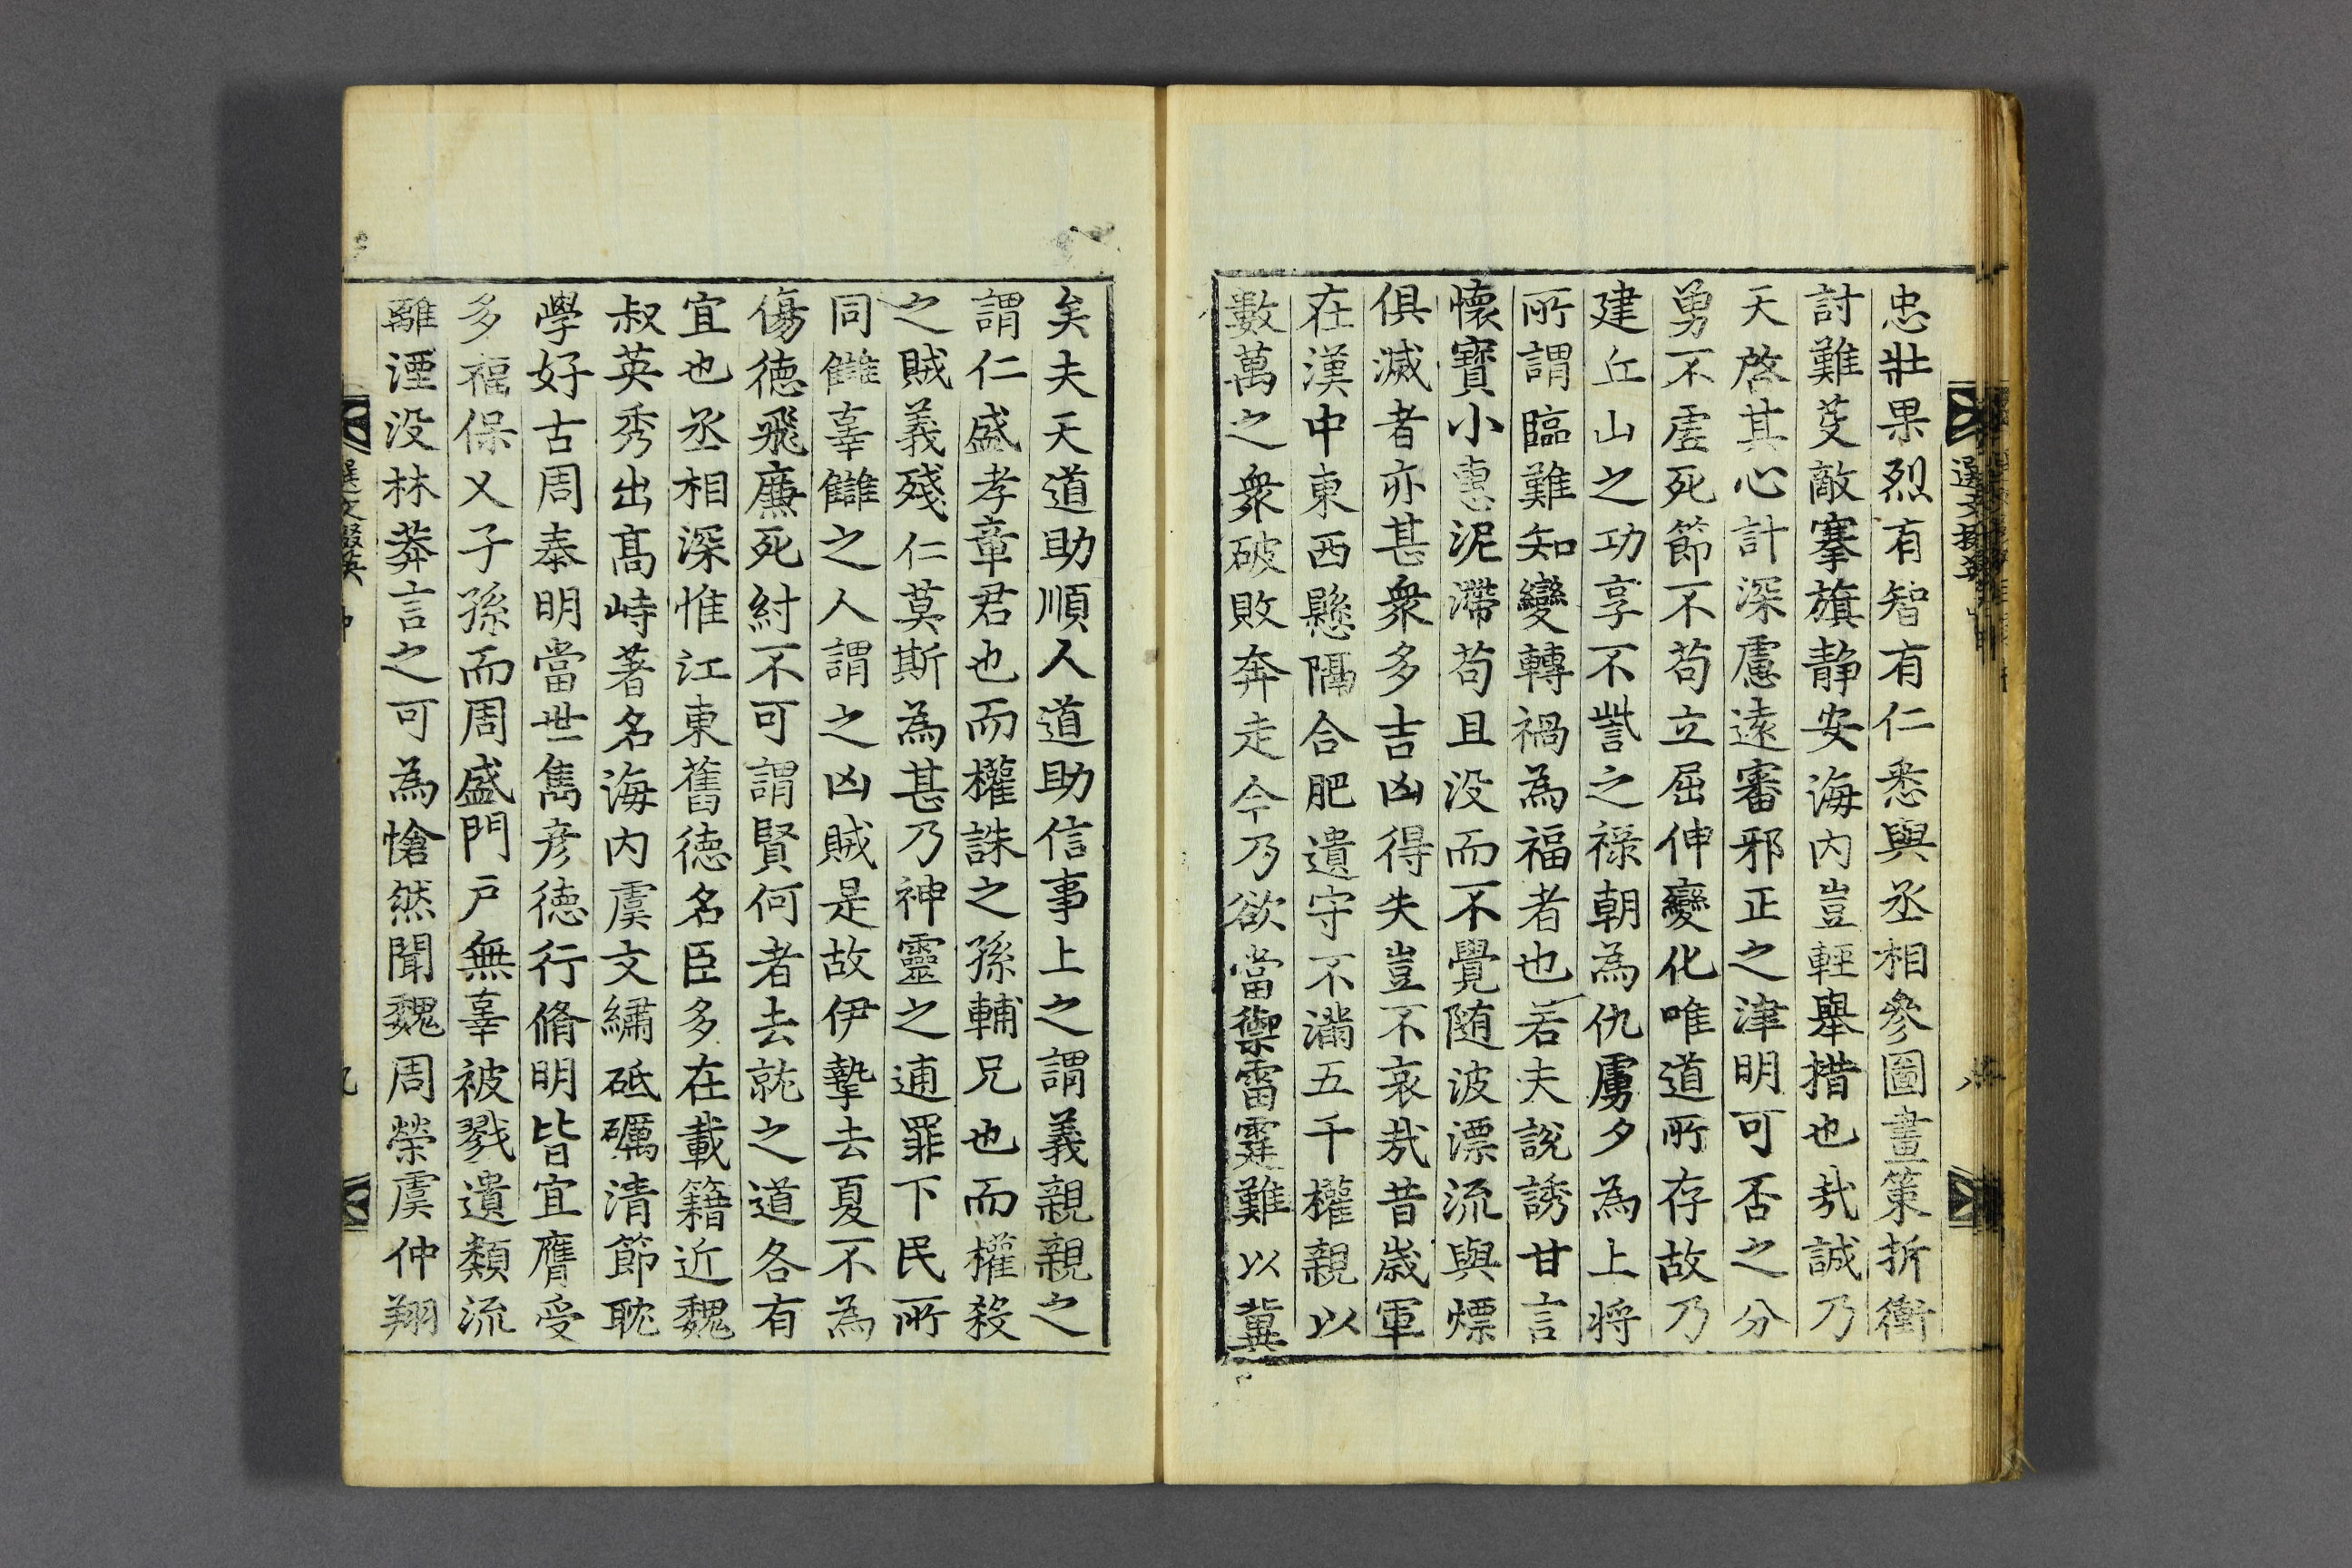 忠壯果烈有智有仁悉與丞相參圖畫策折衝
討難芟敵搴旗静安海内豈輕舉措也㢤誠乃
天啓其心計深慮遠審邪正之津明可否之分
勇不虛死節不苟立屈伸變化唯道所存故乃
建丘山之功享不訾之祿朝為仇虜夕為上將
所謂臨難知變轉禍為福者也若夫說誘甘言
懷寶小惠泥滯苟且没而不覺随波漂流與熛
俱滅者亦甚衆多吉凶得失豈不哀㢤昔歲軍
在漢中東西懸隔合肥遺守不滿五千權親以
數萬之衆破敗奔走今乃欲當禦雷霆難以冀
選文掇英
八
矣夫天道助順人道助信事上之謂義親親之
謂仁盛孝章君也而權誅之孫輔兄也而權殺
之賊義殘仁莫斯為甚乃神靈之逋罪下民所
同讎辜讎之人謂之凶賊是故伊摯去夏不為
傷德飛廉死紂不可謂賢何者去就之道各有
宜也丞相深惟江東舊德名臣多在載籍近魏
叔英秀出髙峙著名海内虞文繡砥礪清節耽
學好古周泰明當世雋彦德行脩明皆宜膺受
多福保乂子孫而周盛門戶無辜被戮遺類流
離湮没林莽言之可為愴然聞魏周榮虞仲翔
選文掇英